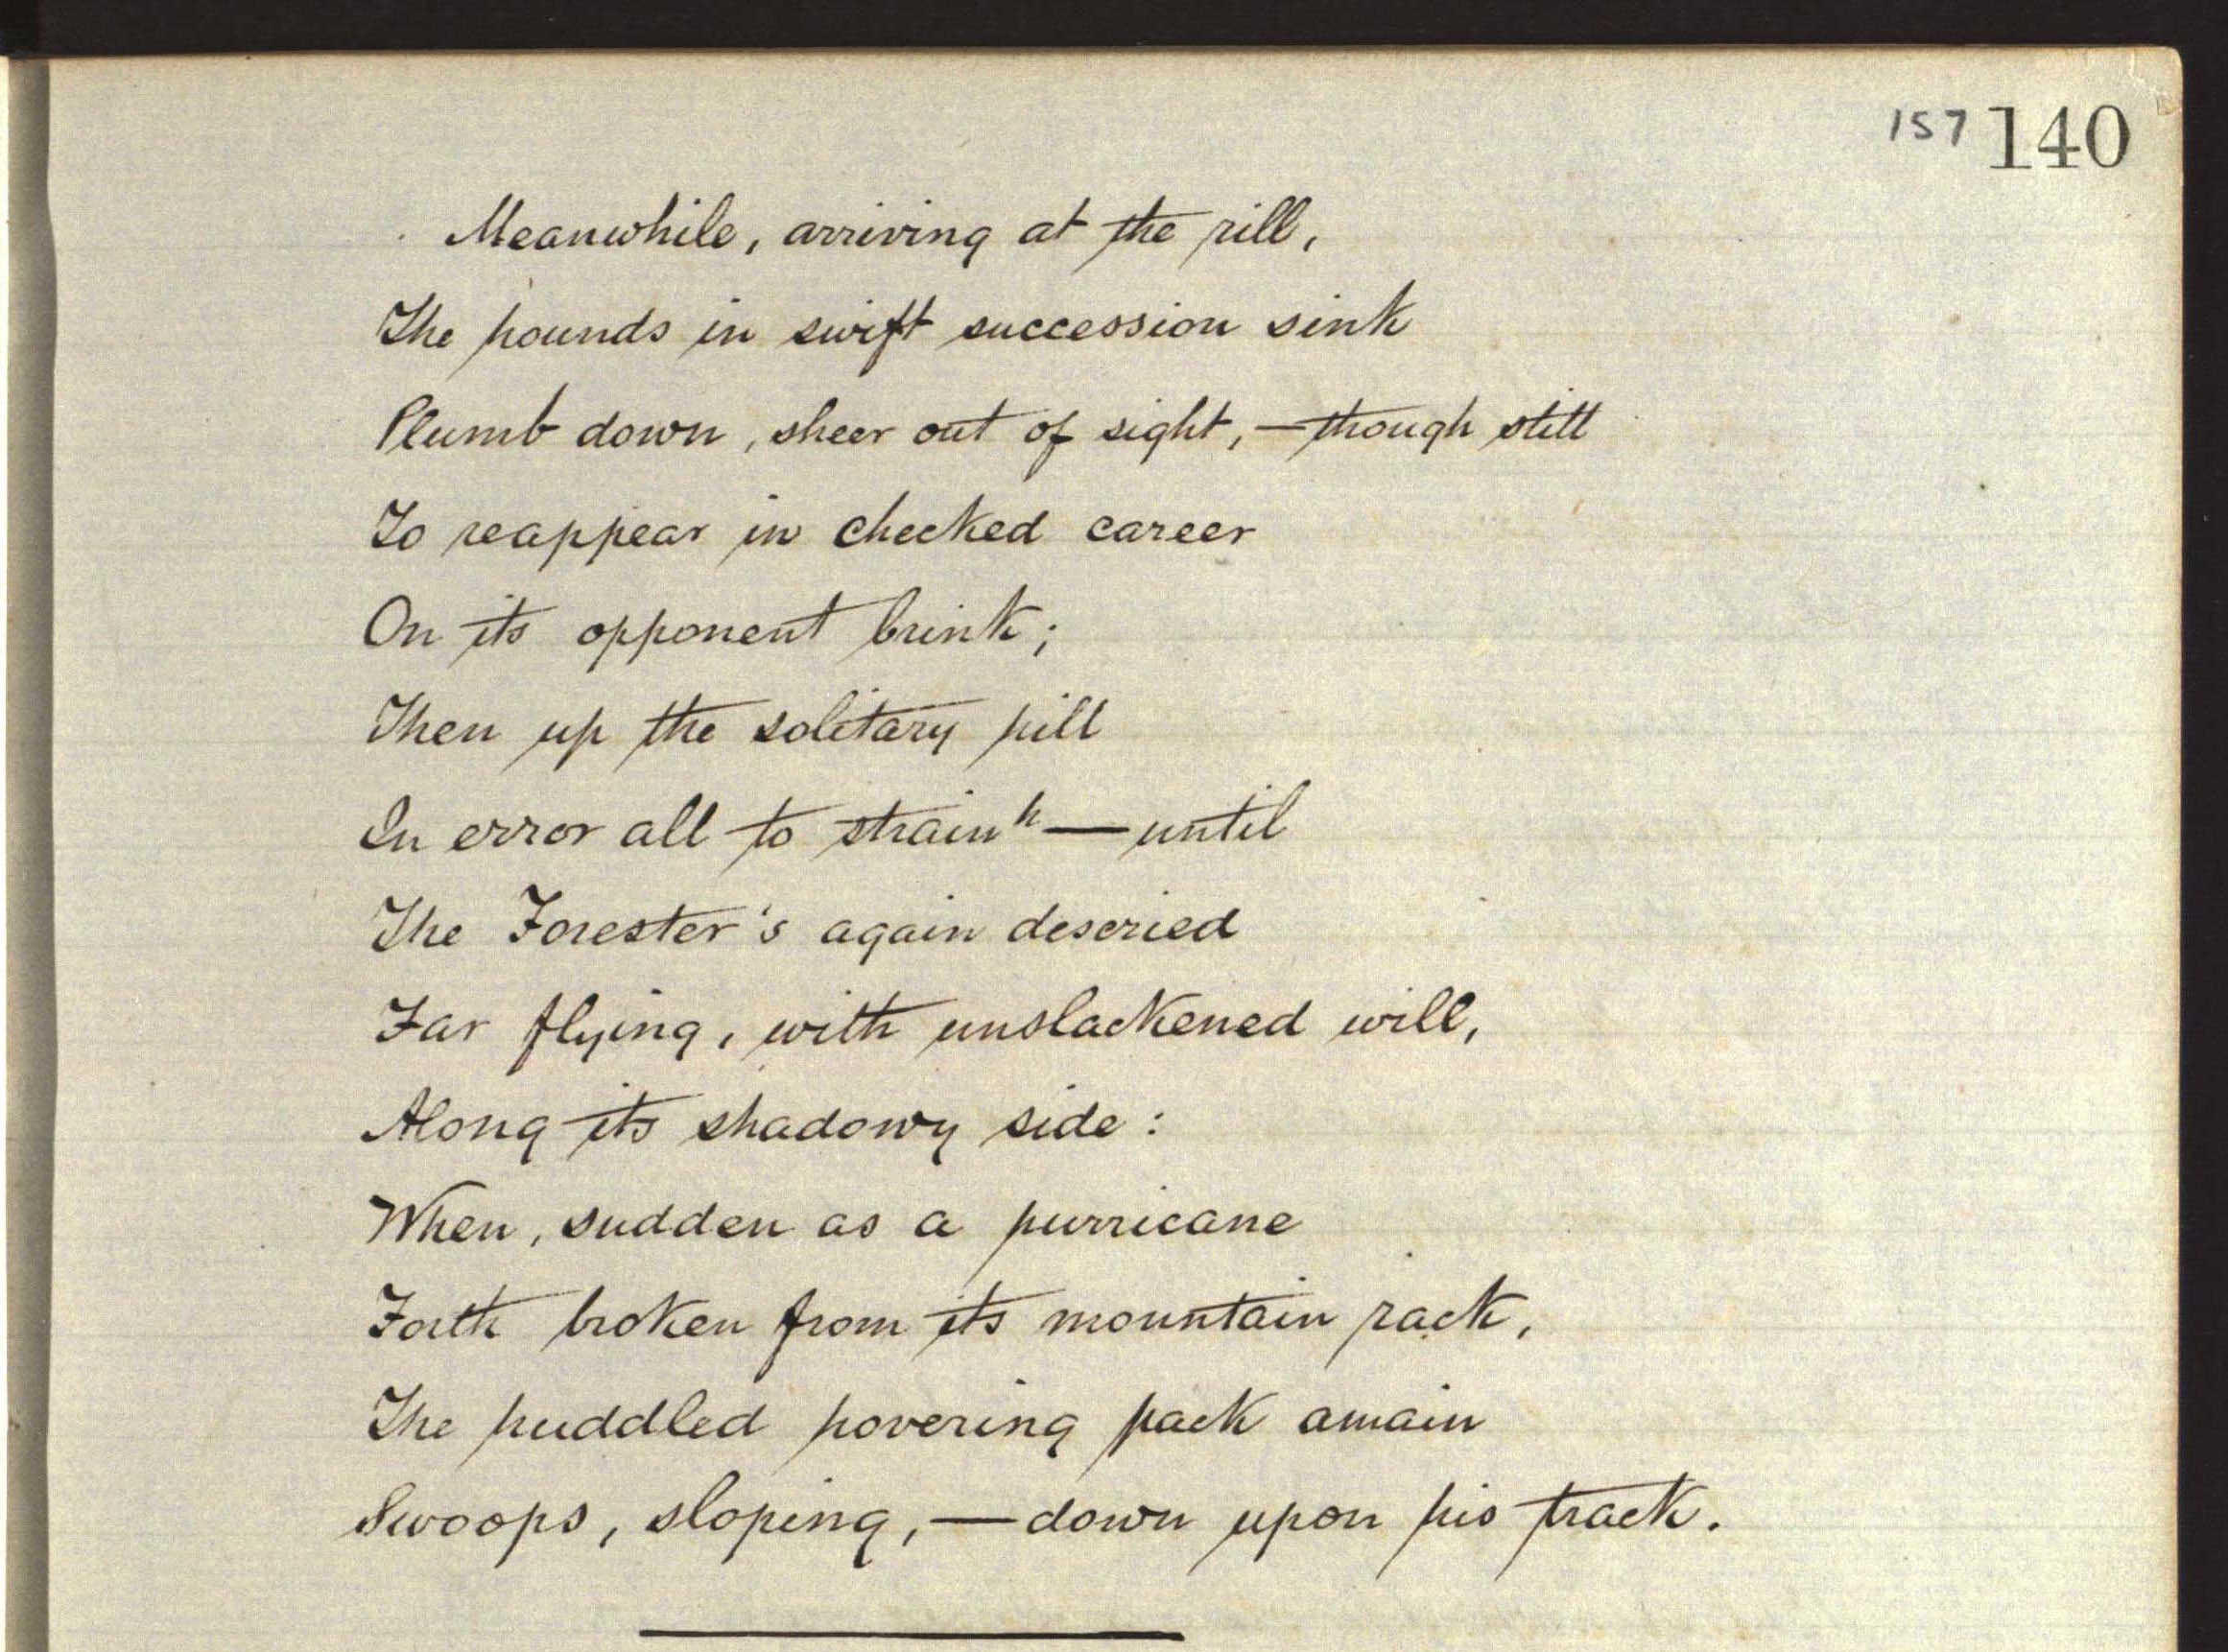 157 140
Meanwhile, arriving at the rill,
The hounds in swift succession sink
Plumb down, sheer out of sight,—though still
To reappear in checked career
On its opponent brink;
Then up the solitary hill
In error all to strain h—until
The Forester's again descried
Far flying, with unslackened will,
Along its shadowy side:
When, sudden as a hurricane
Forth broken from its mountain rack,
The huddled hovering pack amain
Swoops, sloping,—down upon his track.